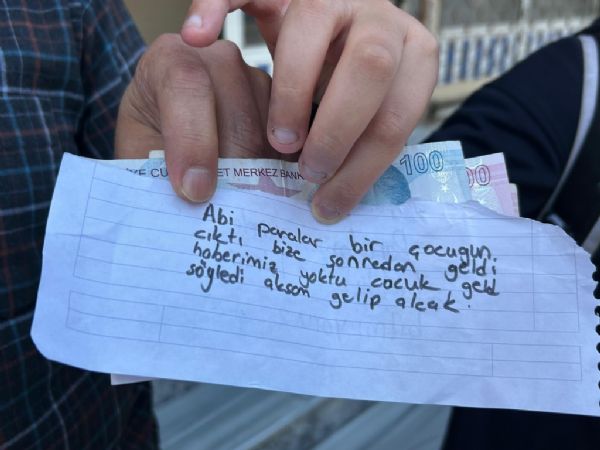 İZE CU ET MERKEZ BANK 100 00
Abi paralar bir çocuğun.
çıktı bize sonradan geldi
haberimiz yoktu çocuk geld
söyledi akşam gelip alcak.